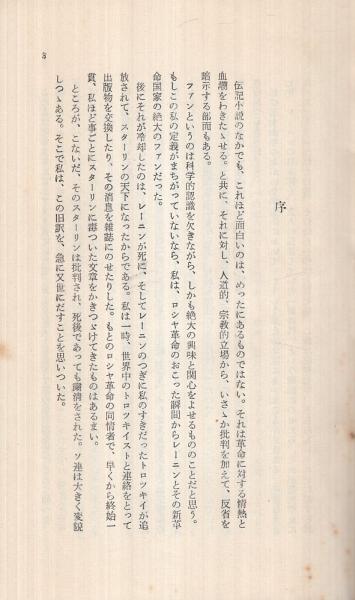 序
伝記小説のなかでも、これほど面白いのは、めったにあるものではない。それは革命に対する情熱と
血潮をわきたゝせる。と共に、それに対し、人道的、宗教的立場から、いさゝか批判を加えて、反省を
暗示する部面もある。
ファンというのは科学的認識を欠きながら、しかも絶大の興味と関心をよせるもののことだと思う。
もしこの私の定義がまちがっていないなら、私は、ロシヤ革命のおこった瞬間からレーニンとその新革
命国家の絶大のファンだった。
後にそれが冷却したのは、レーニンが死に、そしてレーニンのつぎに私のすきだったトロツキイが追
放されて、スターリンの天下になったからである。私は一時、世界中のトロツキイストと連絡をとって
出版物を交換したり、その消息を雑誌にのせたりした。もとのロシヤ革命の同情者で、早くから終始一
貫、私ほど事ごとにスターリンに毒づいた文章をかきつゞけてきたものはあるまい。
ところが、こないだ、そのスターリンは批判され、死後であっても粛清をされた。ソ連は大きく変貌
しつゝある。そこで私は、この旧訳を、急に又世にだすことを思いついた。
3